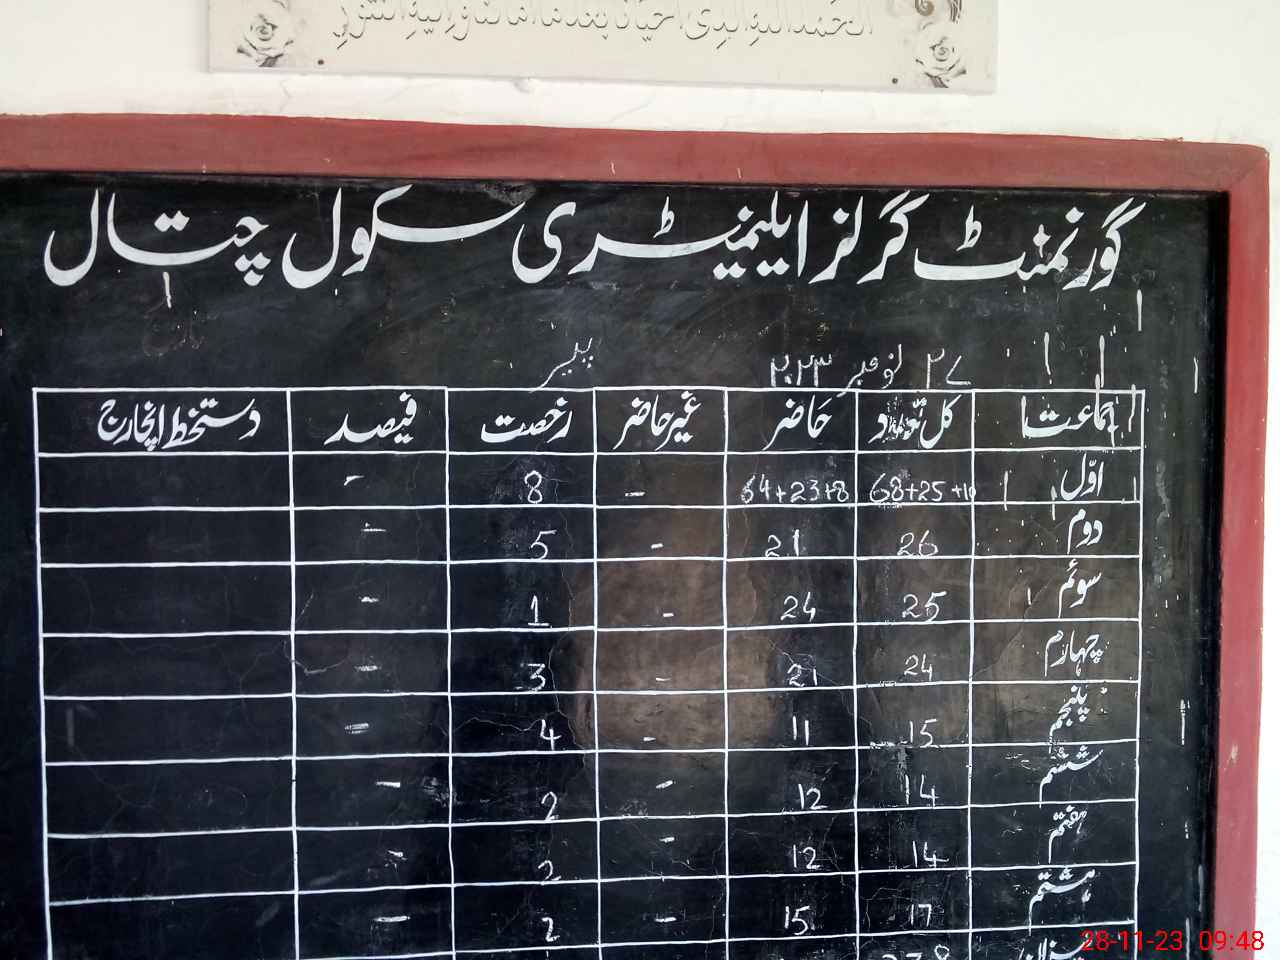 الحمد للہ الذی احیانا بعد ما اماتنا والیہ النشور
گورنمنٹ گرلز ایلیمنٹری سکول چتال
تاریخ
۲۷ نومبر ۲۰۲۳ بروز پیر
جماعت کل تعداد حاضر غیر حاضر رخصت فیصد دستخط انچارج
اوّل 68+25+10 64+23+8 - 8 -
دوم 26 21 - 5 -
سوئم 25 24 - 1 -
چہارم 24 21 - 3 -
پنجم 15 11 - 4 =
ششم 14 12 - 2 -
ہفتم 14 12 - 2 -
ہشتم 17 15 - 2 -
میزان
28-11-23 09:48